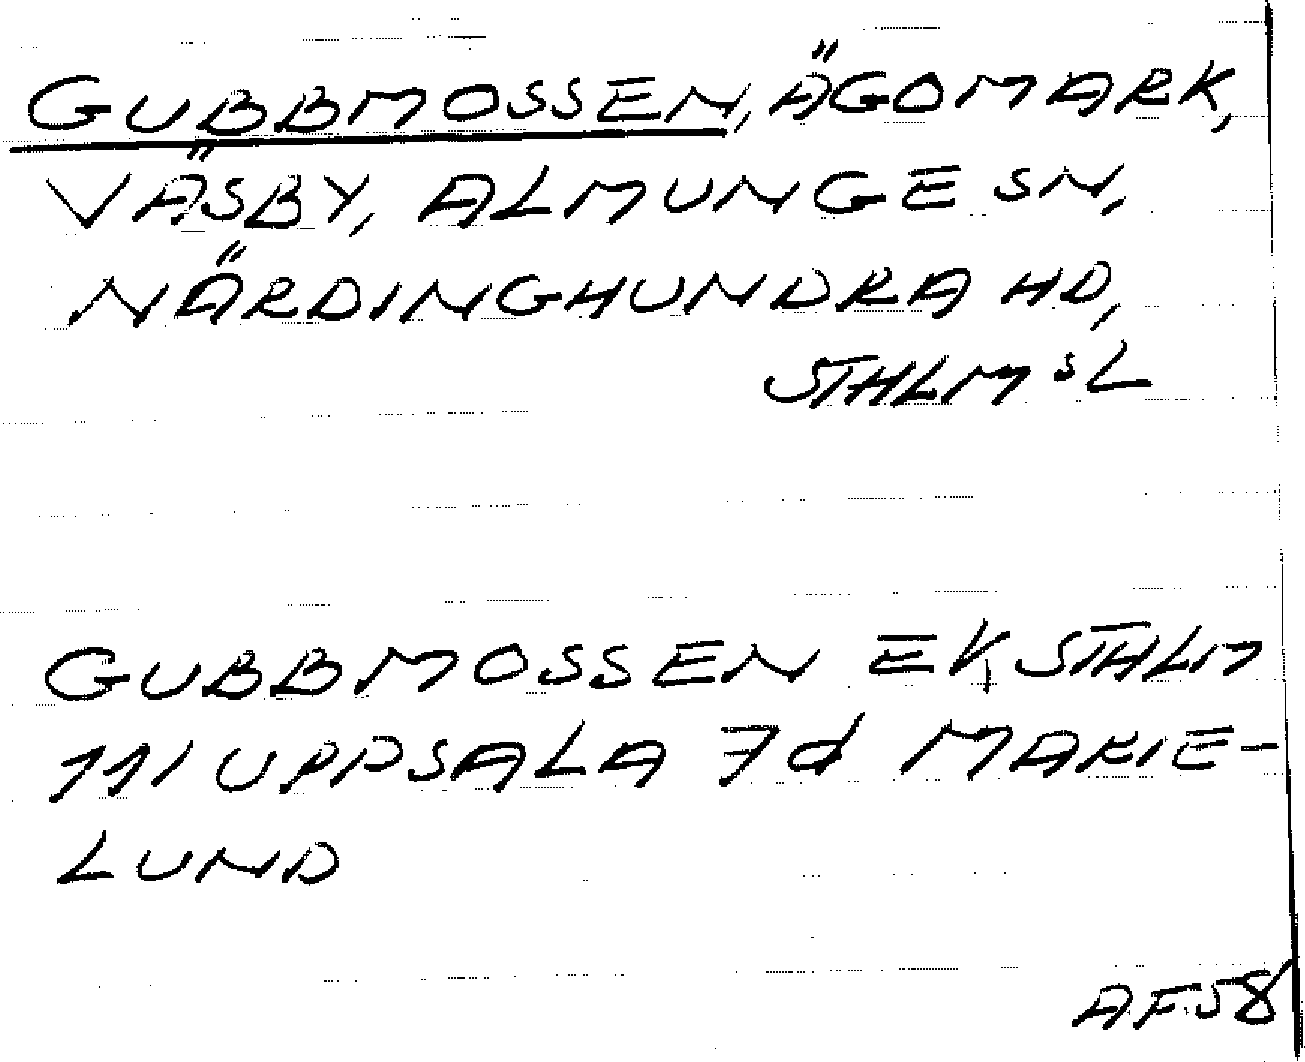 GUBBMOSSEN, ÄGOMARK,
VÄSBY, ALMUNGE SN,
NÄRDINGHUNDRA HD,
STHLMS L
GUBBMOSSEN EK, STHLM
111 UPPSALA 7d MARIE-
LUND
AF58